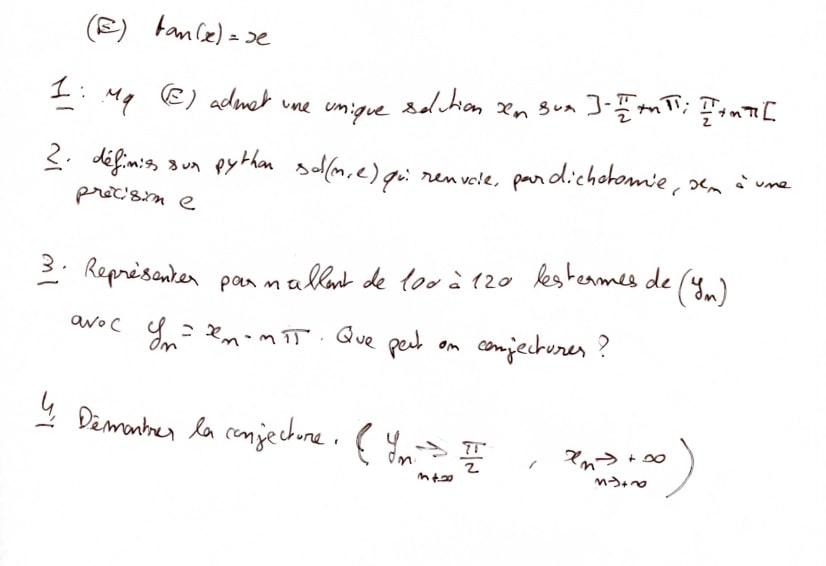 (E) tan(x) = x
1: Mq (E) admet une unique solution xₙ sur ]-π/2+nπ; π/2+nπ[
2. définir sur python sol(n,e) qui renvoie, par dichotomie, xₙ à une
précision e
3. Représenter pour n allant de 100 à 120 les termes de (yₙ)
avec yₙ = xₙ - nπ. Que peut on conjecturer ?
4. Démontrer la conjecture. ( yₙ → π/2 n→+∞ , xₙ → +∞ n→+∞ )